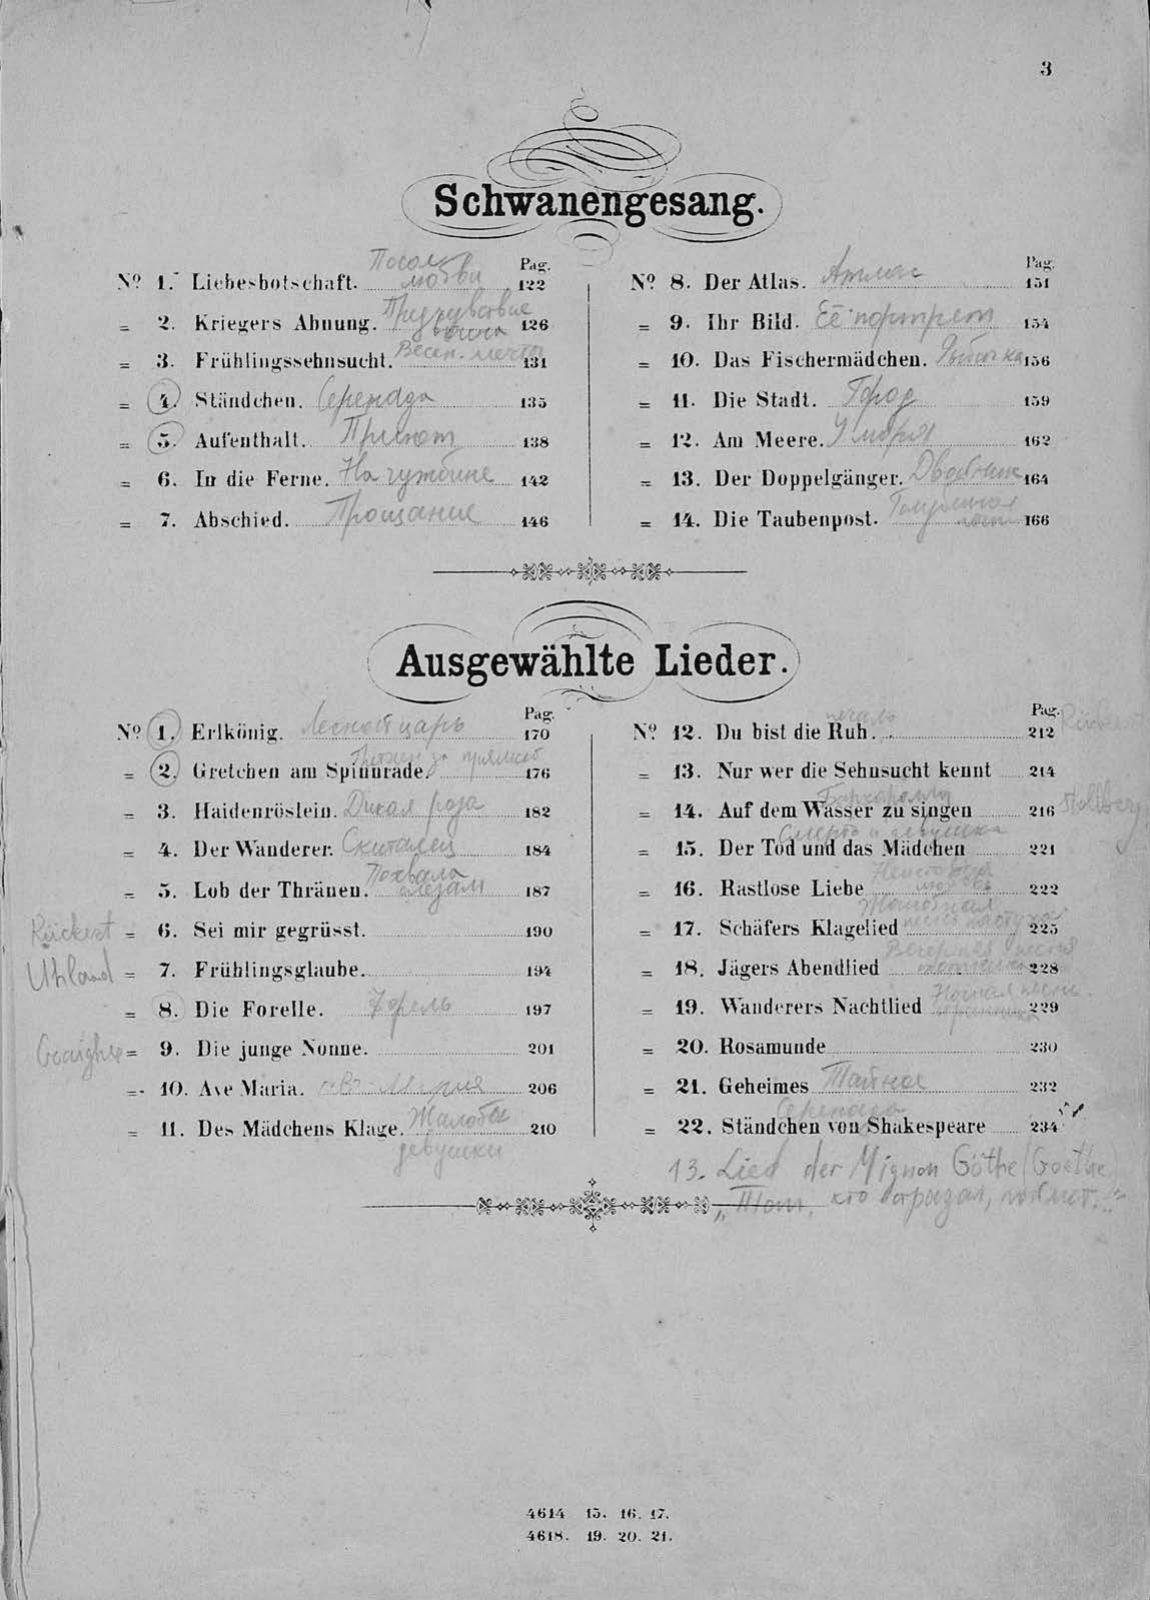 3
Schwanengesang.
Pag.
Nº 1. Liebesbotschaft. Посол любви 122
= 2. Kriegers Ahnung. Предчувствие воина 126
= 3. Frühlingssehnsucht. Весен. мечты 131
= 4. Ständchen. Серенада 135
= 5. Aufenthalt. Приют 138
= 6. In die Ferne. На чужбине 142
= 7. Abschied. Прощание 146
Pag.
Nº 8. Der Atlas. Атлас 151
= 9. Ihr Bild. Её портрет 154
= 10. Das Fischermädchen. Рыбачка 156
= 11. Die Stadt. Город 159
= 12. Am Meere. У моря 162
= 13. Der Doppelgänger. Двойник 164
= 14. Die Taubenpost. Голубиная почта 166
Ausgewählte Lieder.
Pag.
Nº 1. Erlkönig. Лесной царь 170
= 2. Gretchen am Spinnrade. Гретхен за прялкой 176
= 3. Haidenröslein. Дикая роза 182
= 4. Der Wanderer. Скиталец 184
= 5. Lob der Thränen. Похвала слезам 187
Rückert = 6. Sei mir gegrüsst. 190
Uhland = 7. Frühlingsglaube. 194
= 8. Die Forelle. Форель 197
Craigher = 9. Die junge Nonne. 201
= 10. Ave Maria. Аве Мария 206
= 11. Des Mädchens Klage. Жалоба девушки 210
Pag.
Nº 12. Du bist die Ruh. 212 Rückert
= 13. Nur wer die Sehnsucht kennt 214
= 14. Auf dem Wasser zu singen Баркаролла 216 Stollberg
= 15. Der Tod und das Mädchen Смерть и девушка 221
= 16. Rastlose Liebe любовь 222
= 17. Schäfers Klagelied Жалобная песнь пастуха 225
= 18. Jägers Abendlied Вечерняя песня охотника 228
= 19. Wanderers Nachtlied Ночная песнь странника 229
= 20. Rosamunde 230
= 21. Geheimes Тайное 232
= 22. Ständchen von Shakespeare Серенада 234
13. Lied der Mignon Göthe (Goethe)
"Тот, кто
4614 15. 16. 17.
4618. 19. 20. 21.